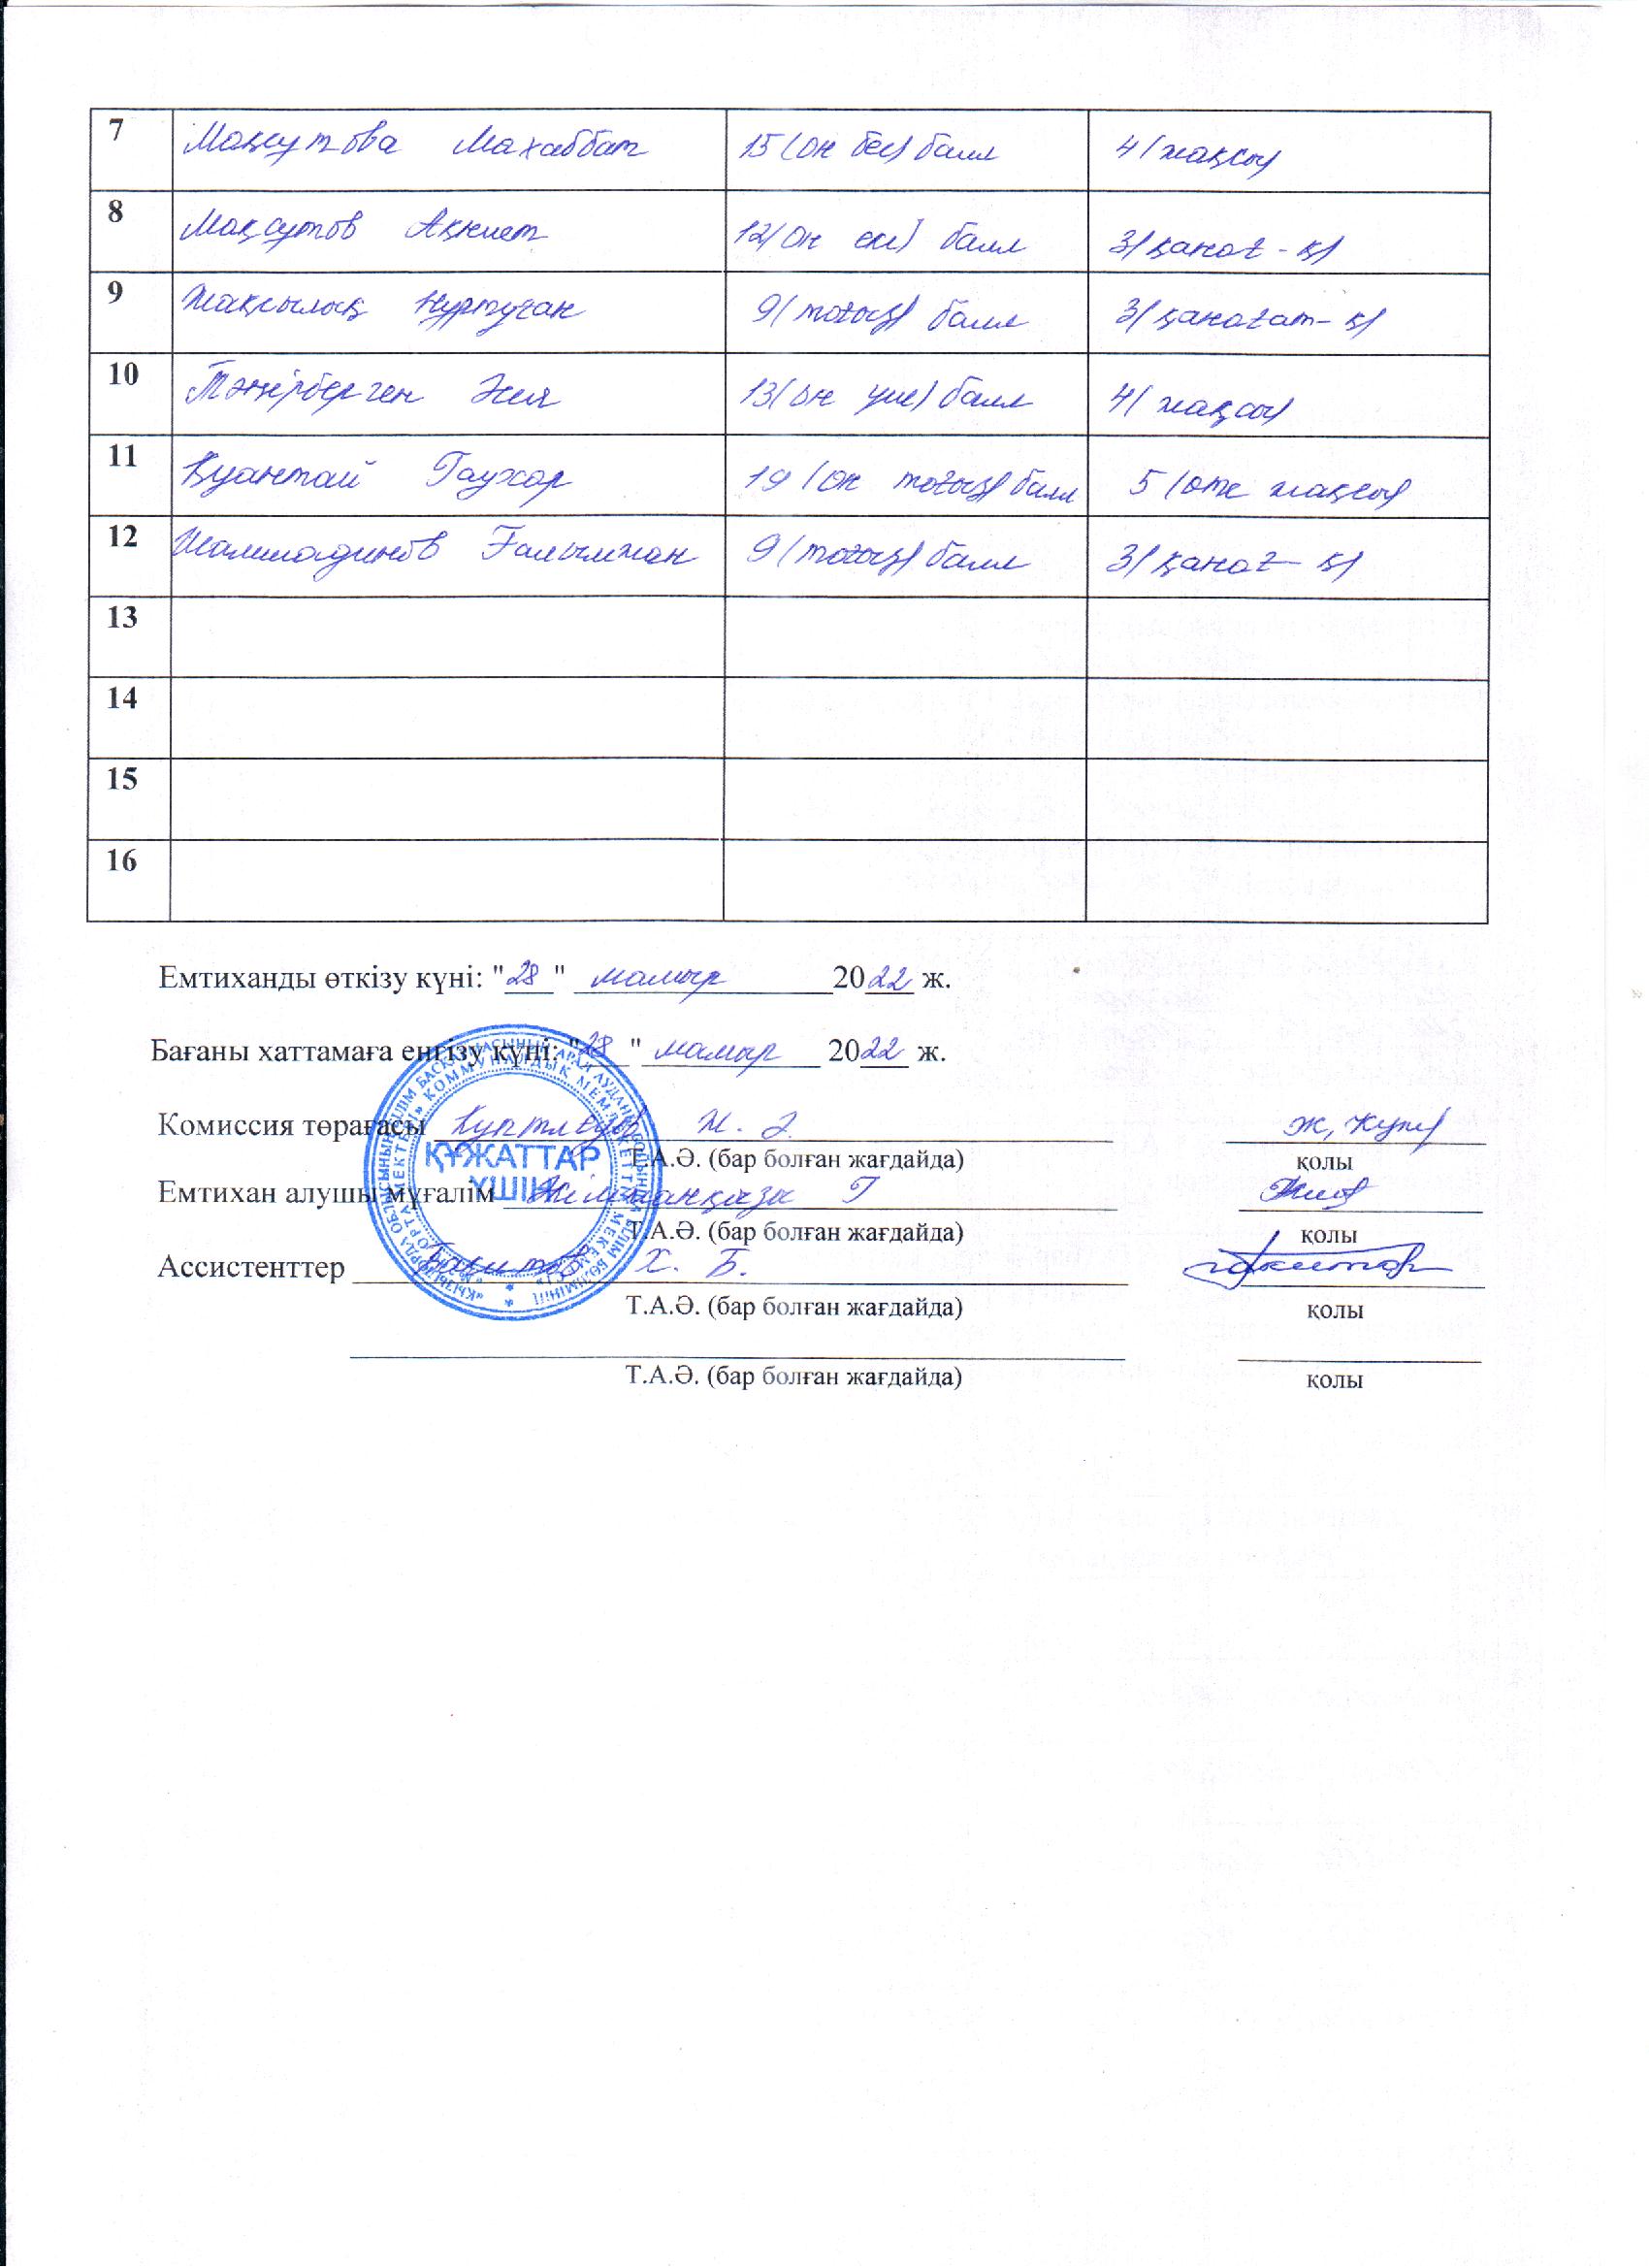 7 Мақсутова Махаббат 15 (он бес) балл 4 (жақсы)
8 Мақсұтов Ақниет 12 (он екі) балл 3 (қанағ-қ)
9 Жақсылық Нұртуған 9 (тоғыз) балл 3 (қанағат-қ)
10 Тәңірберген Әсия 13 (он үш) балл 4 (жақсы)
11 Қуантай Гаухар 19 (он тоғыз) балл 5 (өте жақсы)
12 Шамшадинов Ғалымжан 9 (тоғыз) балл 3 (қанағ-қ)
13
14
15
16
Емтиханды өткізу күні: "28" мамыр 2022 ж.
Бағаны хаттамаға енгізу күні: "28" мамыр 2022 ж.
Комиссия төрағасы Ж. Ә. Ж,
Т.А.Ә. (бар болған жағдайда) қолы
Емтихан алушы мұғалім Г
Т.А.Ә. (бар болған жағдайда) қолы
Ассистенттер Х. Б.
Т.А.Ә. (бар болған жағдайда) қолы
Т.А.Ә. (бар болған жағдайда) қолы
ҚҰЖАТТАР
ҮШІН